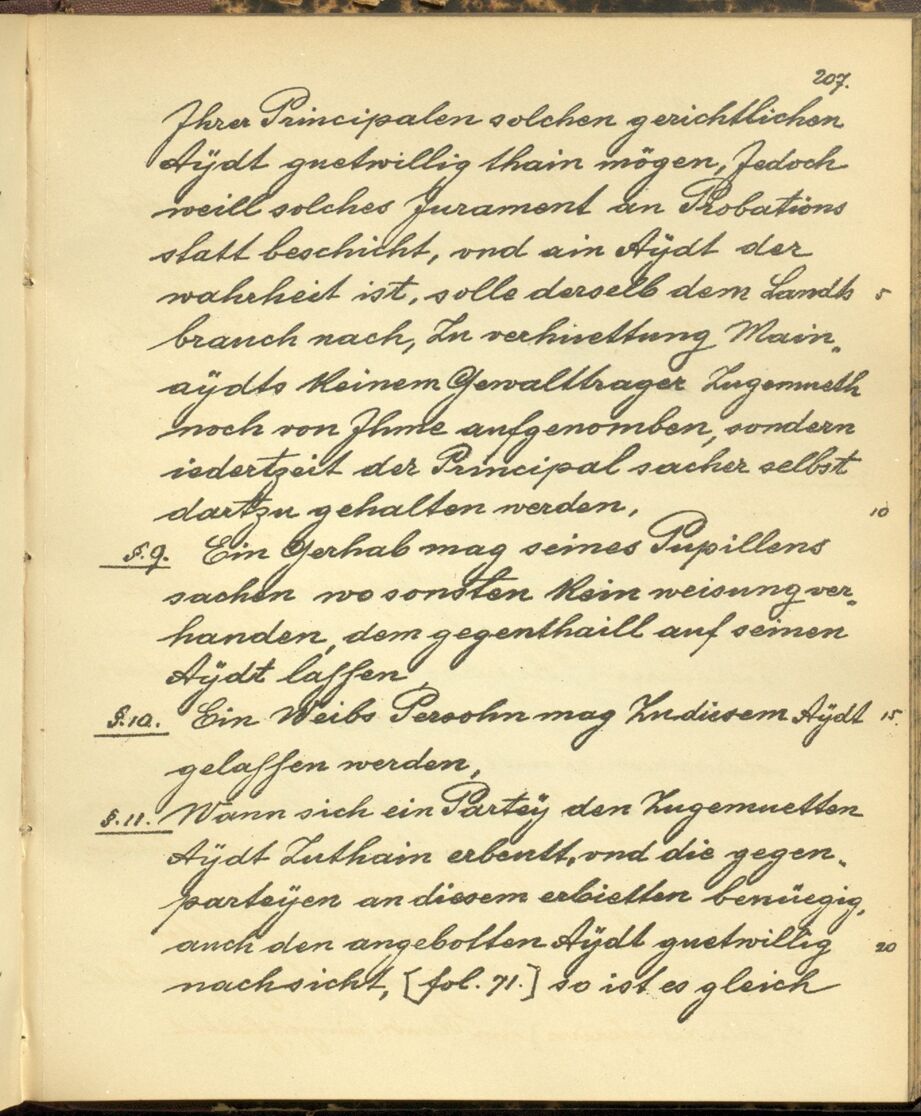 207.
Jhrer Principalen solchen gerichtlichen
Aÿdt guetwillig thain mögen, Jedoch
weill solches Jurament an Probations
statt beschicht, vnd ain Aÿdt der
wahrheit ist, solle derselb dem Landts 5
brauch nach, Zu verhuettung Main„
aÿdts Keinem Gewalttrager Zugemueth
noch von Jhme aufgenomben, sondern
iedertzeit der Principal sacher selbst
dartzu gehalten werden, 10
§. 9. Ein Gerhab mag seines Pupillens
sachen wo sonsten Kein weisung ver„
handen, dem gegenthaill auf seinen
Aÿdt lassen,
§. 10. Ein Weibs Persohn mag Zu diesem Aÿdt 15.
gelassen werden,
§. 11. Wann sich ein Parteÿ den Zugemuetten
Aÿdt Zuthain erbeutt, vnd die gegen„
parteÿen an diesem erbietten benüegig,
auch den angebotten Aÿdt guetwillig 20
nachsicht, [fol. 71.] so ist es gleich